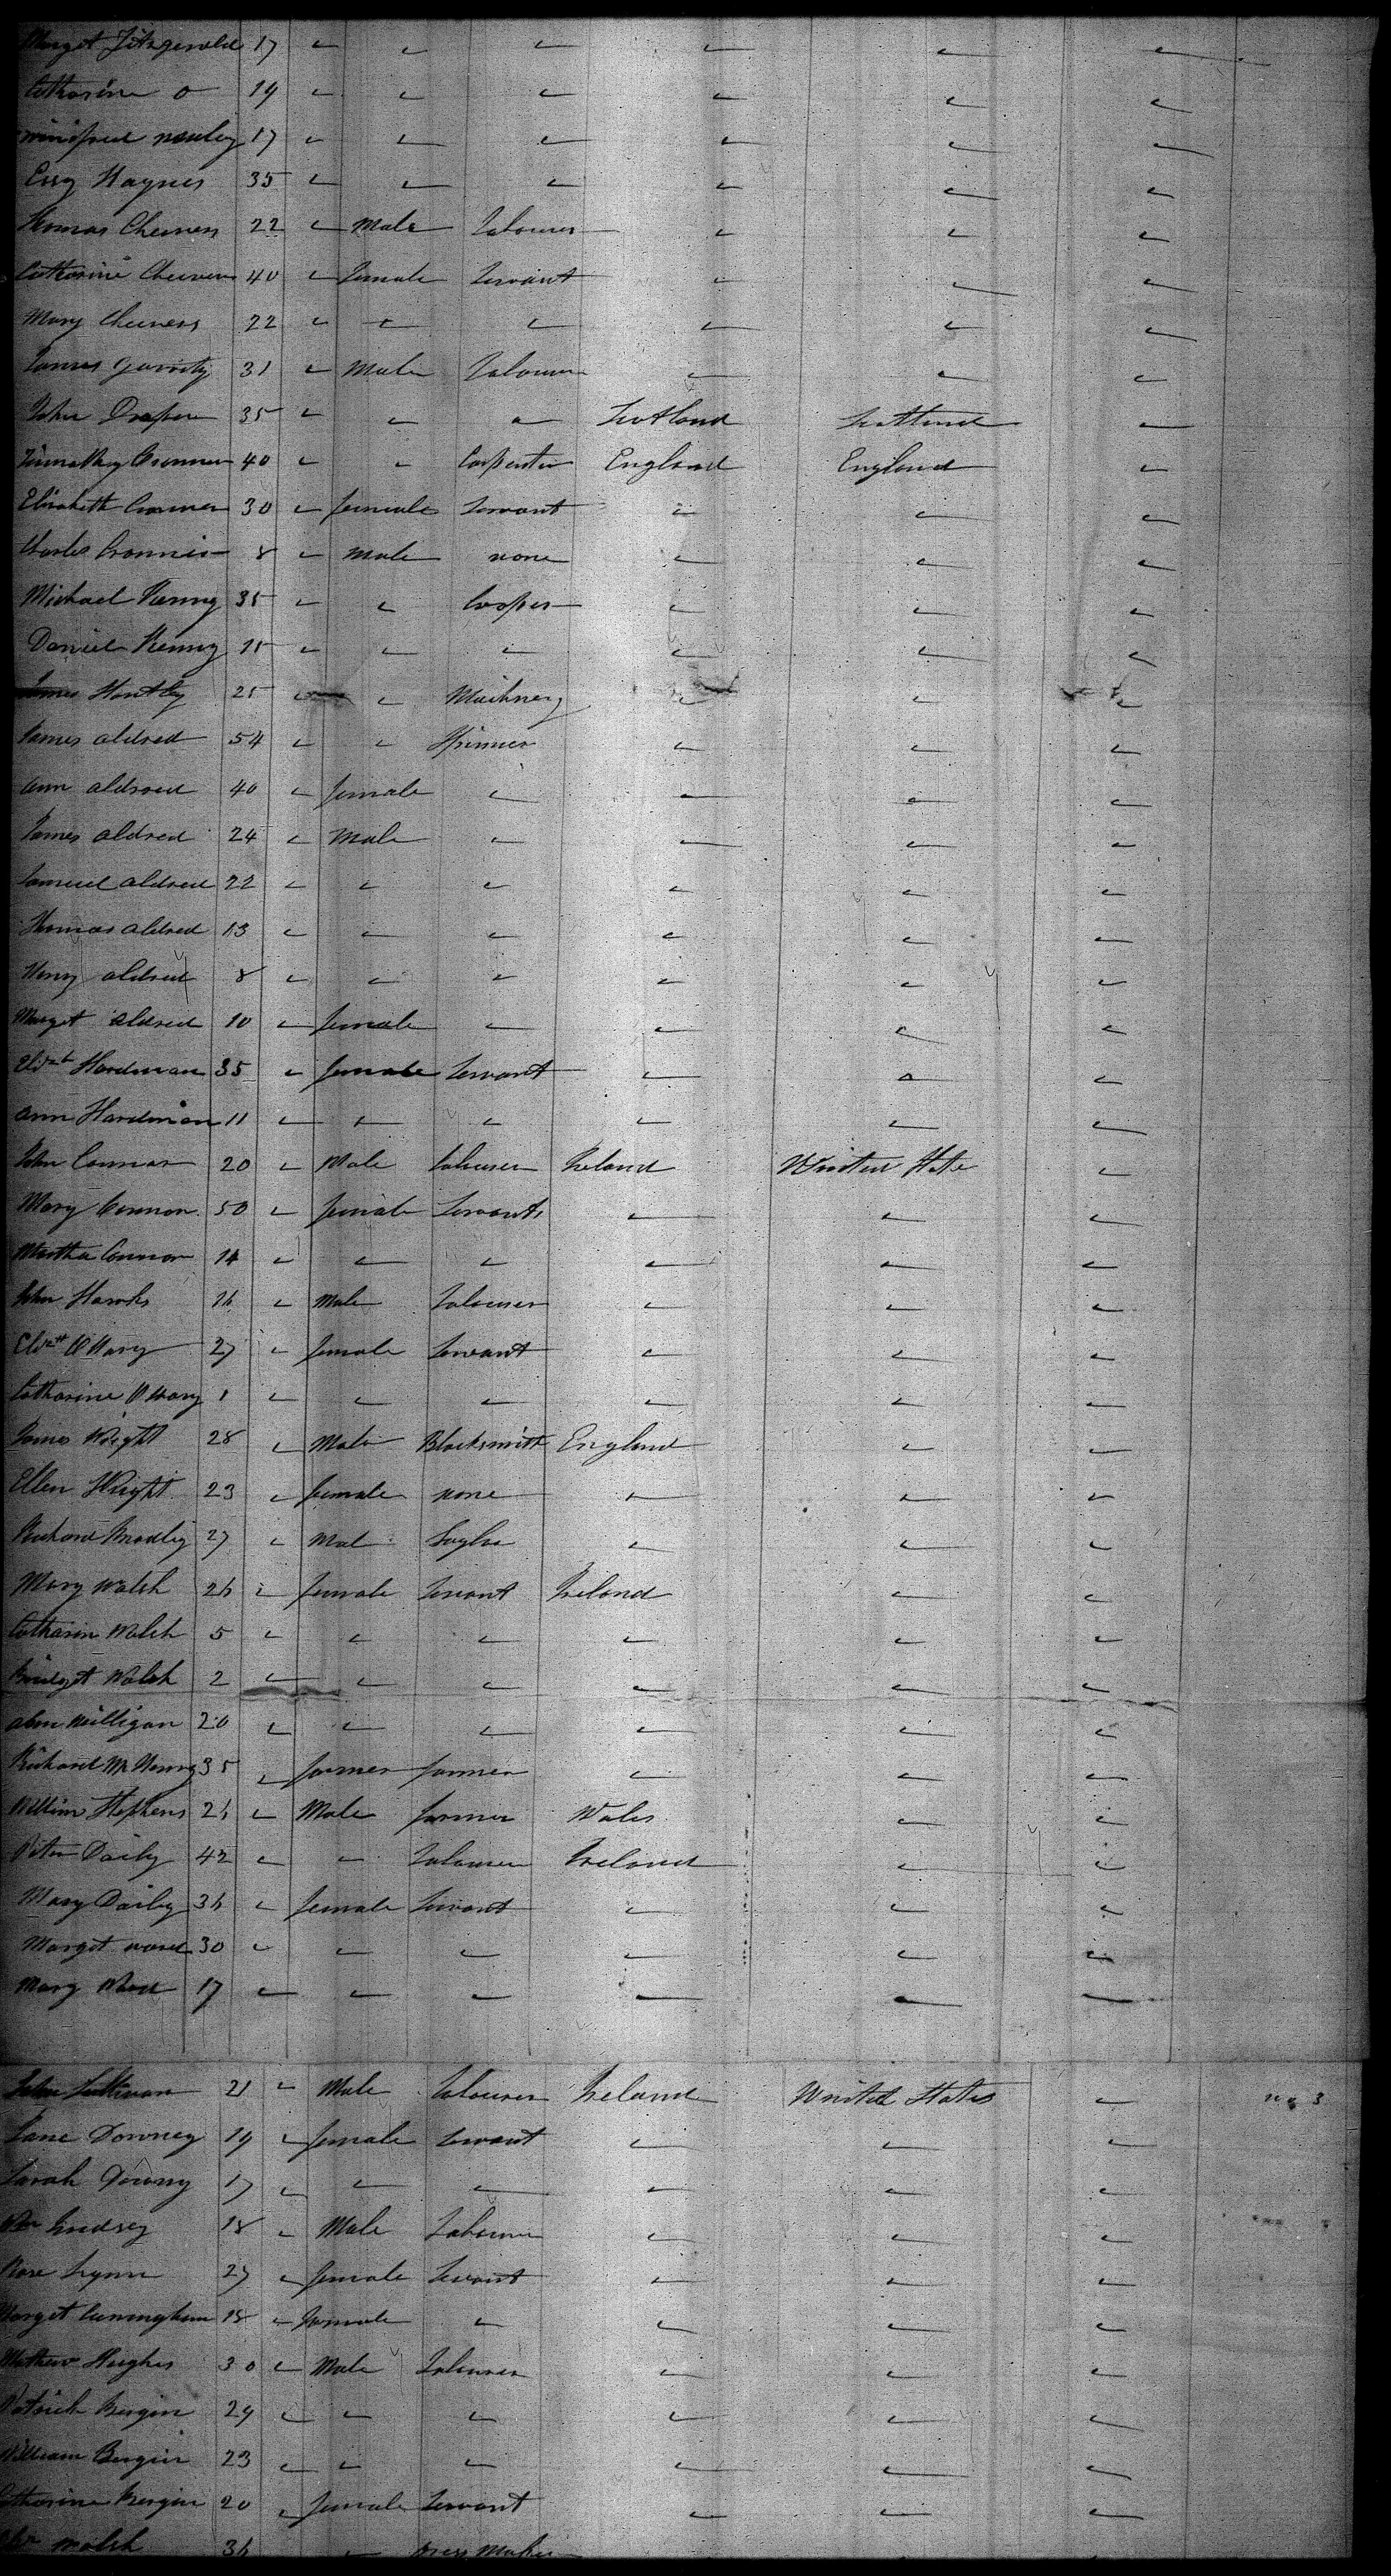 Marget Fitzgerald 17 " " " " " "
Catharine o 19 " " " " " "
winifred 17 " " " " " "
Essy Haynes 35 " " " " " "
Thomas Cheevers 22 " Male Labourer " " "
Catharine Cheevers 40 " female Servant " " "
Mary Cheevers 22 " " " " " "
James Garrity 31 " Male Labourer " " "
John Draper 35 " " " Scotland Scotland "
Timmathy Cronmer 40 " " Carpenter England England "
Elizabeth Cronmer 30 " female Servant " " "
Charles Cronmer 8 " Male none " " "
Michael Kenny 35 " " Cooper " " "
Daniel Kenny 15 " " " " " "
James Huntley 25 " " " " "
James aldred 54 " " Spinner " " "
ann aldred 40 " female " " " "
James aldred 24 " Male " " " "
Samuel aldred 22 " " " " " "
Thomas aldred 13 " " " " " "
Henry aldred 8 " " " " " "
Marget aldred 10 " female " " " "
Elizt Hardman 35 " female Servant " " "
ann Hardman 11 " " " " " "
John Connor 20 " Male Labourer Ireland United State "
Mary Connor 50 " female Servant " " "
Martha Connor 14 " " " " " "
John Hawks 16 " Male Labourer " " "
Elizth O Hary 27 " female Servant " " "
Catharine O Hary 1 " " " " " "
James Wright 28 " Male Blacksmith England " "
Ellen Wright 23 " female none " " "
Richard Bradley 27 " Mal Saylor " " "
Mary Walsh 26 " female Servant Ireland " "
Catharin Walsh 5 " " " " " "
Bridget Walsh 2 " " " " " "
ann Milligan 20 " " " " " "
Richard Mc 35 " farmer farmer " " "
William Stephens 26 " Male farmer Wales " "
Peter Daily 42 " " Labourer Ireland " "
Mary Daily 36 " female Servant " " "
Marget ward 30 " " " " " "
Mary Ward 17 " " " " " "
John Sullivan 21 " Male Labourer Ireland United States " no 3
Jane Downey 19 " female Servant " " "
Sarah Downy 17 " " " " " "
Wm Lindsey 18 " Male Labourer " " "
Rose Lynn 27 " female Servant " " "
Marget Cunningham 18 " female " " " "
Mathew Hughes 30 " Male Labourer " " "
Patrick Bergin 29 " " " " " "
William Bergin 23 " " " " " "
Catharine Bergin 20 " female Servant " " "
Walsh 36 " Dress Maker